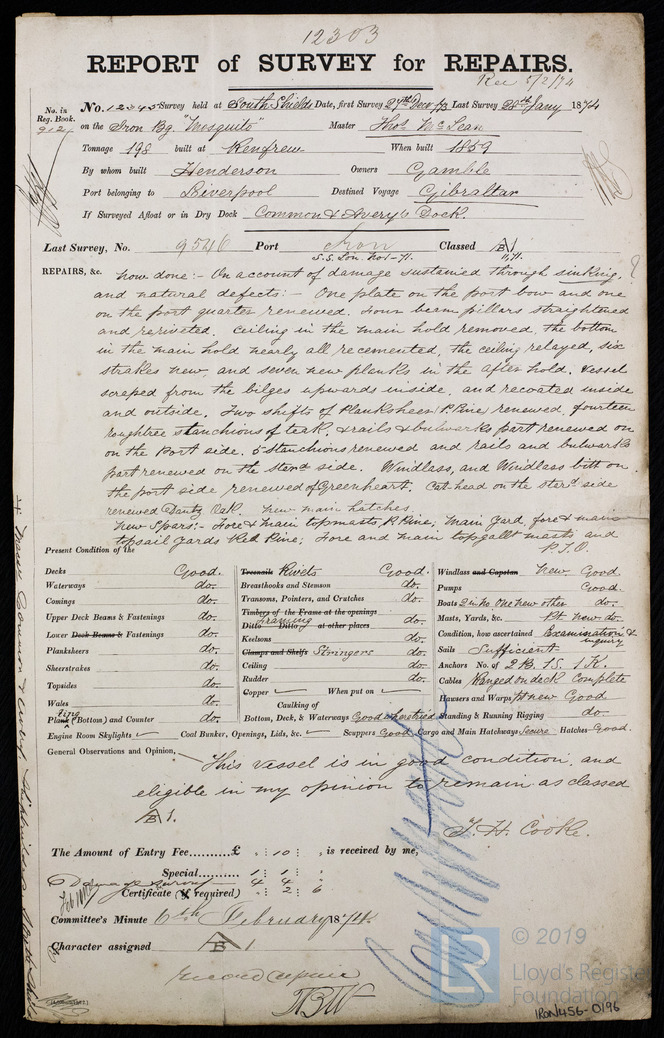 12303
REPORT of SURVEY for REPAIRS.
Rec 5/2/74
No. in Reg. Book. 912
No. 12345 Survey held at South Shields Date, first Survey 27th Decr 73 Last Survey 20th Jany 1874
on the Iron Bg. "Mosquito" Master Thos. McLean
Tonnage 198 built at Renfrew When built 1859
By whom built Henderson Owners Gamble
Port belonging to Liverpool Destined Voyage Gibraltar
If Surveyed Afloat or in Dry Dock Common & Avery's Dock.
Last Survey, No. 9546 Port Iron Classed A1
S.S. Lon. No 1-71. 11,71.
REPAIRS, &c. now done:- On account of damage sustained through sinking,
and natural defects:- One plate on the port bow and one
on the port quarter renewed, four beam pillars straightened
and reriveted. Ceiling in the main hold removed, the bottom
in the main hold nearly all recemented, the ceiling relayed, six
strakes new, and seven new planks in the after hold. Vessel
scraped from the bilges upwards inside, and recoated inside
and outside. Two shifts of Planksheer P. Pine renewed, fourteen
roughtree stanchions of teak, & rails & bulwarks part renewed on
on the Port side. 5 Stanchions renewed and rails and bulwarks
part renewed on the starbd side. Windlass, and Windlass bitt on
the port side renewed of Greenheart. Cat-head on the starbd side
renewed Dantz Oak. new main hatches.
New Spars:- Fore & Main topmasts, P. Pine, Main yard, fore & main
topsail yards Red Pine, Fore and main topgallt masts and
P.T.O.
Present Condition of the
Decks Good. Treenails Rivets Good. Windlass and Capstan New. Good
Waterways do. Breasthooks and Stemson do. Pumps Good.
Comings do. Transoms, Pointers, and Crutches do. Boats 2 in no. One new other do.
Upper Deck Beams & Fastenings do. Timbers of the Frame at the openings Masts, Yards, &c. Pt. new do.
Ditto Ditto at other places Framing do. Condition, how ascertained Examination & inquiry
Lower Deck Beams & Fastenings do. Keelsons do. Sails Sufficient
Planksheers do. Clamps and Shelfs Stringers do. Anchors No. of 2 B. 1 S. 1 K.
Sheerstrakes do. Ceiling do. Cables Ranged on deck Complete
Topsides do. Rudder do. Hawsers and Warps Pt new Good
Wales do. Copper ✓ When put on ✓ Standing & Running Rigging do.
Plating (Bottom) and Counter do. Caulking of Bottom, Deck, & Waterways Good
Engine Room Skylights ✓ Coal Bunker, Openings, Lids, &c. ✓ Scuppers Good Cargo and Main Hatchways Secure Hatches Good.
General Observations and Opinion,
This vessel is in good condition, and
eligible in my opinion to remain as classed
A1.
T. H. Cooke.
The Amount of Entry Fee..........£ : 10 : , is received by me,
Special.......... 1 : 1 :
Damage survey 4 4
Certificate (if required) : 2 : 6
Committee's Minute 6th February 1874
Character assigned A1
© 2019
LR
Lloyd's Register
Foundation
IRON456-0196